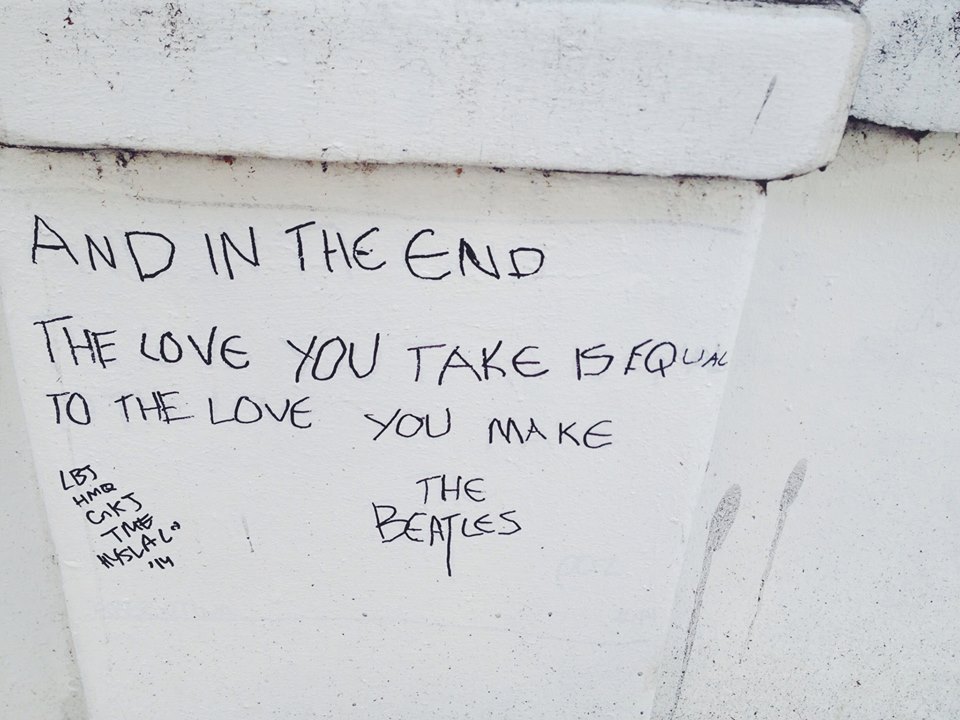 AND IN THE END
THE LOVE YOU TAKE IS EQUAL
TO THE LOVE YOU MAKE
THE
BEATLES
LBJ
HMQ
GKJ
TME
'14